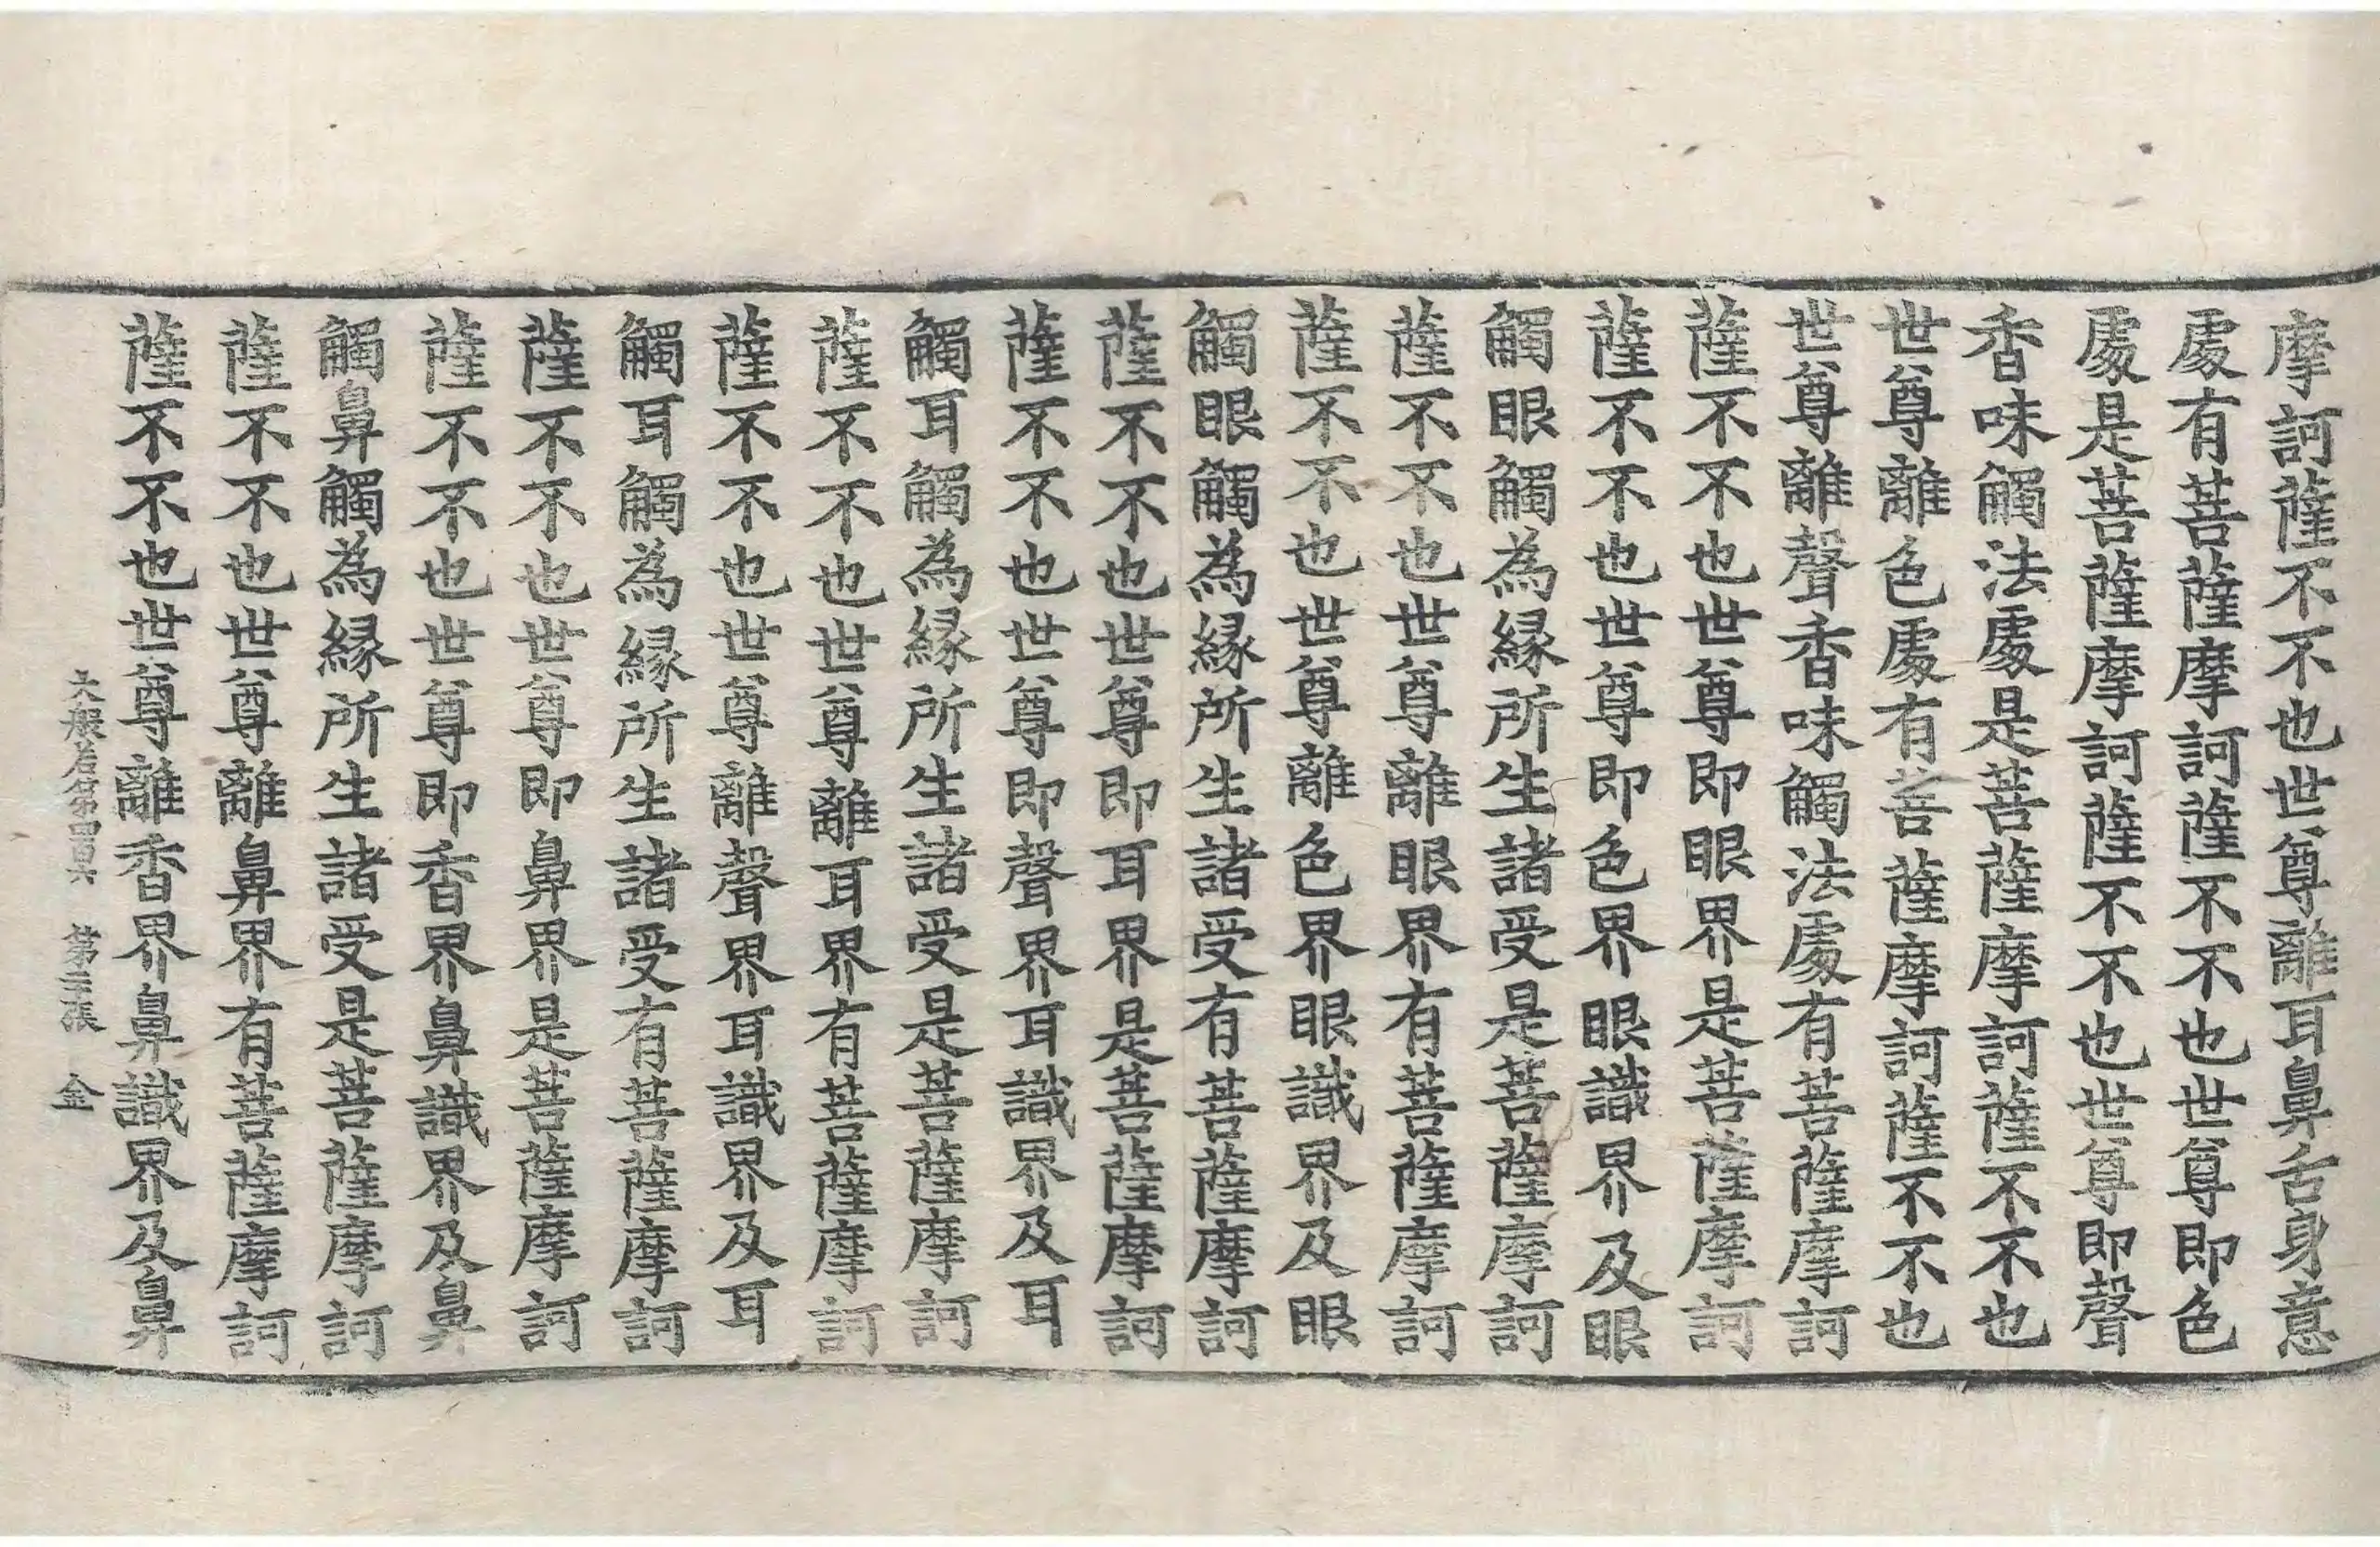 摩訶薩不不也世尊離耳鼻舌身意
處有菩薩摩訶薩不不也世尊即色
處是菩薩摩訶薩不不也世尊即聲
香味觸法處是菩薩摩訶薩不不也
世尊離色處有菩薩摩訶薩不不也
世尊離聲香味觸法處有菩薩摩訶
薩不不也世尊即眼界是菩薩摩訶
薩不不也世尊即色界眼識界及眼
觸眼觸為緣所生諸受是菩薩摩訶
薩不不也世尊離眼界有菩薩摩訶
薩不不也世尊離色界眼識界及眼
觸眼觸為緣所生諸受有菩薩摩訶
薩不不也世尊即耳界是菩薩摩訶
薩不不也世尊即聲界耳識界及耳
觸耳觸為緣所生諸受是菩薩摩訶
薩不不也世尊離耳界有菩薩摩訶
薩不不也世尊離聲界耳識界及耳
觸耳觸為緣所生諸受有菩薩摩訶
薩不不也世尊即鼻界是菩薩摩訶
薩不不也世尊即香界鼻識界及鼻
觸鼻觸為緣所生諸受是菩薩摩訶
薩不不也世尊離鼻界有菩薩摩訶
薩不不也世尊離香界鼻識界及鼻
大般若第四百六 第三張 金